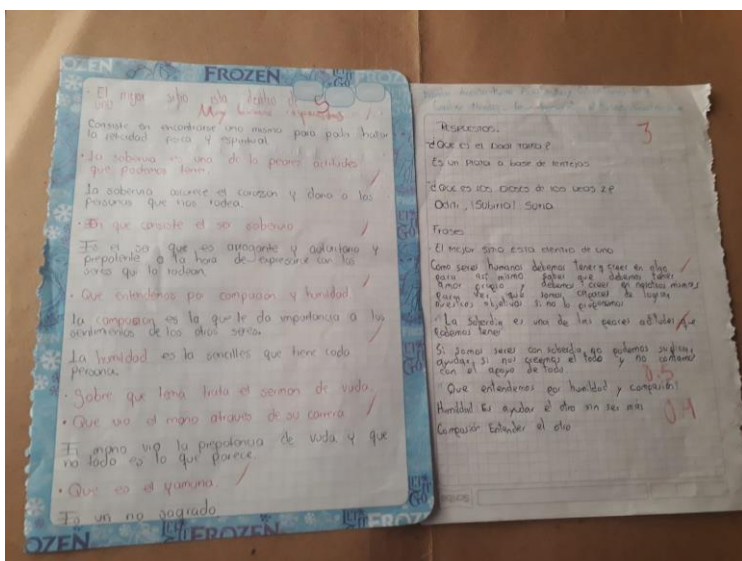 FROZEN
El mejor sitio esta dentro de
uno
5
Muy buenas respuestas
Consiste en encontrarse uno mismo para poder hallar
la felicidad fisica y espiritual.
La soberbia es una de la peores actitudes
que podemos tener.
la soberbia oscurece el corazon y daña a las
personas que nos rodea.
En que consiste el ser soberbio
Es el ser que es arrogante y autoritario y
prepotente a la hora de expresarse con los
seres que lo rodean.
Que entendemos por compasion y humildad
la compasion es la que le da importancia a los
sentimientos de los otros seres.
la humildad es la sencilles que tiene cada
persona.
Sobre que tema trata el sermon de vuda.
Que vio el mono atraves de su carrera
El mono vio la prepotencia de vuda y que
no todo es lo que parece.
Que es el yamuna.
Es un rio sagrado
LET IT GO
FROZEN
Respuestas.
3
¿Que es el Daal tarka?
Es un Plato a base de lentejas
¿Que es los Dioses de las
Frases
El mejor sitio esta dentro de uno
Como seres humanos debemos tener y creer en algo
para así mismo saber que debemos tener
amor propio y debemos creer en nosotros mismos
para ver que somos capaces de lograr
nuestros objetivos si no lo proponemos
"La Soberbia es una de las peores actitudes que
Podemos tener
Si somos seres con soberbia, no podemos
ayudar, si nos creemos el todo y no contamos
con el apoyo de todo
0.5
"Que entendemos por humildad y compasión!
Humildad: Es ayudar el otro sin ser mas
0.4
Compasión Entender el otro